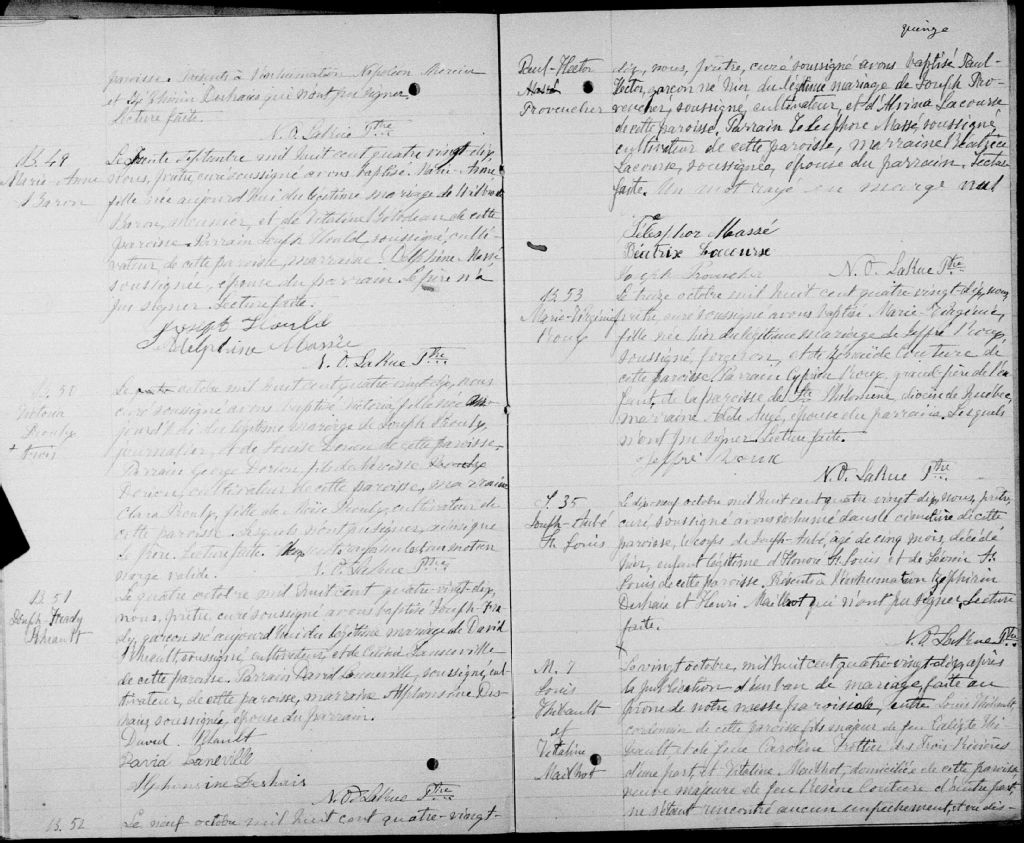 paroisse. Présents à l'inhumation Napoléon Morin
et Zéphirin Deshaies qui n'ont pu signer.
Lecture faite.
N. O. LaRue Ptre
B. 49
Marie-Anne
Baron
Le trente septembre mil huit cent quatre vingt dix,
nous, prêtre curé soussigné avons baptisé Marie-Anne
fille née aujourd'hui du légitime mariage de
Baron, meunier, et de Vitaline Bilodeau de cette
paroisse. Parrain Joseph Hould, soussigné, culti-
vateur, de cette paroisse, marraine Delphine Massé
soussignée, épouse du parrain. Le père n'a
pu signer. Lecture faite.
Joseph Houle
Delphine Massée
N. O. LaRue Ptre
B. 50
Victoria
Prouly
Le octobre mil huit cent quatre vingt dix, nous
curé soussigné avons baptisé Victoria fille née au-
jourd'hui du légitime mariage de Joseph Prouly,
journalier, et de Louise Dorion de cette paroisse.
Parrain George Dorion fils de Narcisse
Dorion, cultivateur de cette paroisse, marraine
Clara Prouly, fille de Moïse Prouly, cultivateur de
cette paroisse. Lesquels n'ont pu signer, ainsi que
le père. Lecture faite. un mot en
marge valide.
N. O. LaRue Ptre
B. 51
Joseph-Fredy
Rheault
Le quatre octobre mil huit cent quatre-vingt-dix,
nous, prêtre curé soussigné avons baptisé Joseph-Fre-
dy, garçon né aujourd'hui du légitime mariage de David
Rheault, soussigné, cultivateur, et de Célina Lanneville
de cette paroisse. Parrain David Lanneville, soussigné, cul-
tivateur, de cette paroisse, marraine Alphonsine Des-
hais, soussignée, épouse du parrain.
David Rheault
David Laneville
Alphonsine Deshais
N. O. LaRue Ptre
B. 52
Le neuf octobre mil huit cent quatre-vingt-
quinze
Paul-Hector
Provencher
dix, nous, prêtre, curé soussigné avons baptisé Paul-
Hector, garçon né hier, du légitime mariage de Joseph Pro-
vencher, soussigné, cultivateur, et d'Alvina Lacourse
de cette paroisse, Parrain Télesphore Massé, soussigné,
cultivateur de cette paroisse, marraine Béatrice
Lacourse, soussignée, épouse du parrain. Lecture
faite. Un mot rayé en marge nul
Télesphor Massé
Béatrix Lacourse
Joseph Provencher
N. O. LaRue Ptre
B. 53
Marie-Virginie
Roux
Le treize octobre mil huit cent quatre vingt-dix, nous,
prêtre curé soussigné avons baptisé Marie-Virginie,
fille née hier du légitime mariage de Jeffré Roux,
soussigné, forgeron, et de Couture de
cette paroisse. Parrain Cyprien Roux, grand-père de l'en-
fant, de la paroisse de Ste Philomène, diocèse de Québec,
marraine Adèle Augé, épouse du parrain. Lesquels
n'ont pu signer. Lecture faite.
Jeffré Roux
N. O. LaRue Ptre
S. 35
Joseph-Aubé
St. Louis
Le dix-neuf octobre mil huit cent quatre vingt dix, nous, prêtre,
curé, soussigné avons inhumé dans le cimetière de cette
paroisse, le corps de Joseph-Aubé, âgé de cinq mois, décédé
hier, enfant légitime d'Honoré St. Louis et de St.
Louis de cette paroisse. Présents à l'inhumation Zéphirin
Deshaies et Henri Mailhot qui n'ont pu signer. Lecture
faite.
N. O. LaRue Ptre
M. 7
Louis
Thibault
et
Vitaline
Mailhot
Le vingt octobre, mil huit cent quatre-vingt-dix, après
la publication d'un ban de mariage, faite au
prône de notre messe paroissiale, entre Louis Thibault
cordonnier de cette paroisse fils majeur de feu Calixte Thi-
bault et de feue Caroline Trottier des Trois Rivières
d'une part, et Vitaline Mailhot, domiciliée de cette paroisse
veuve majeure de feu Couture d'autre part,
ne s'étant rencontré aucun empêchement, et vu dis-